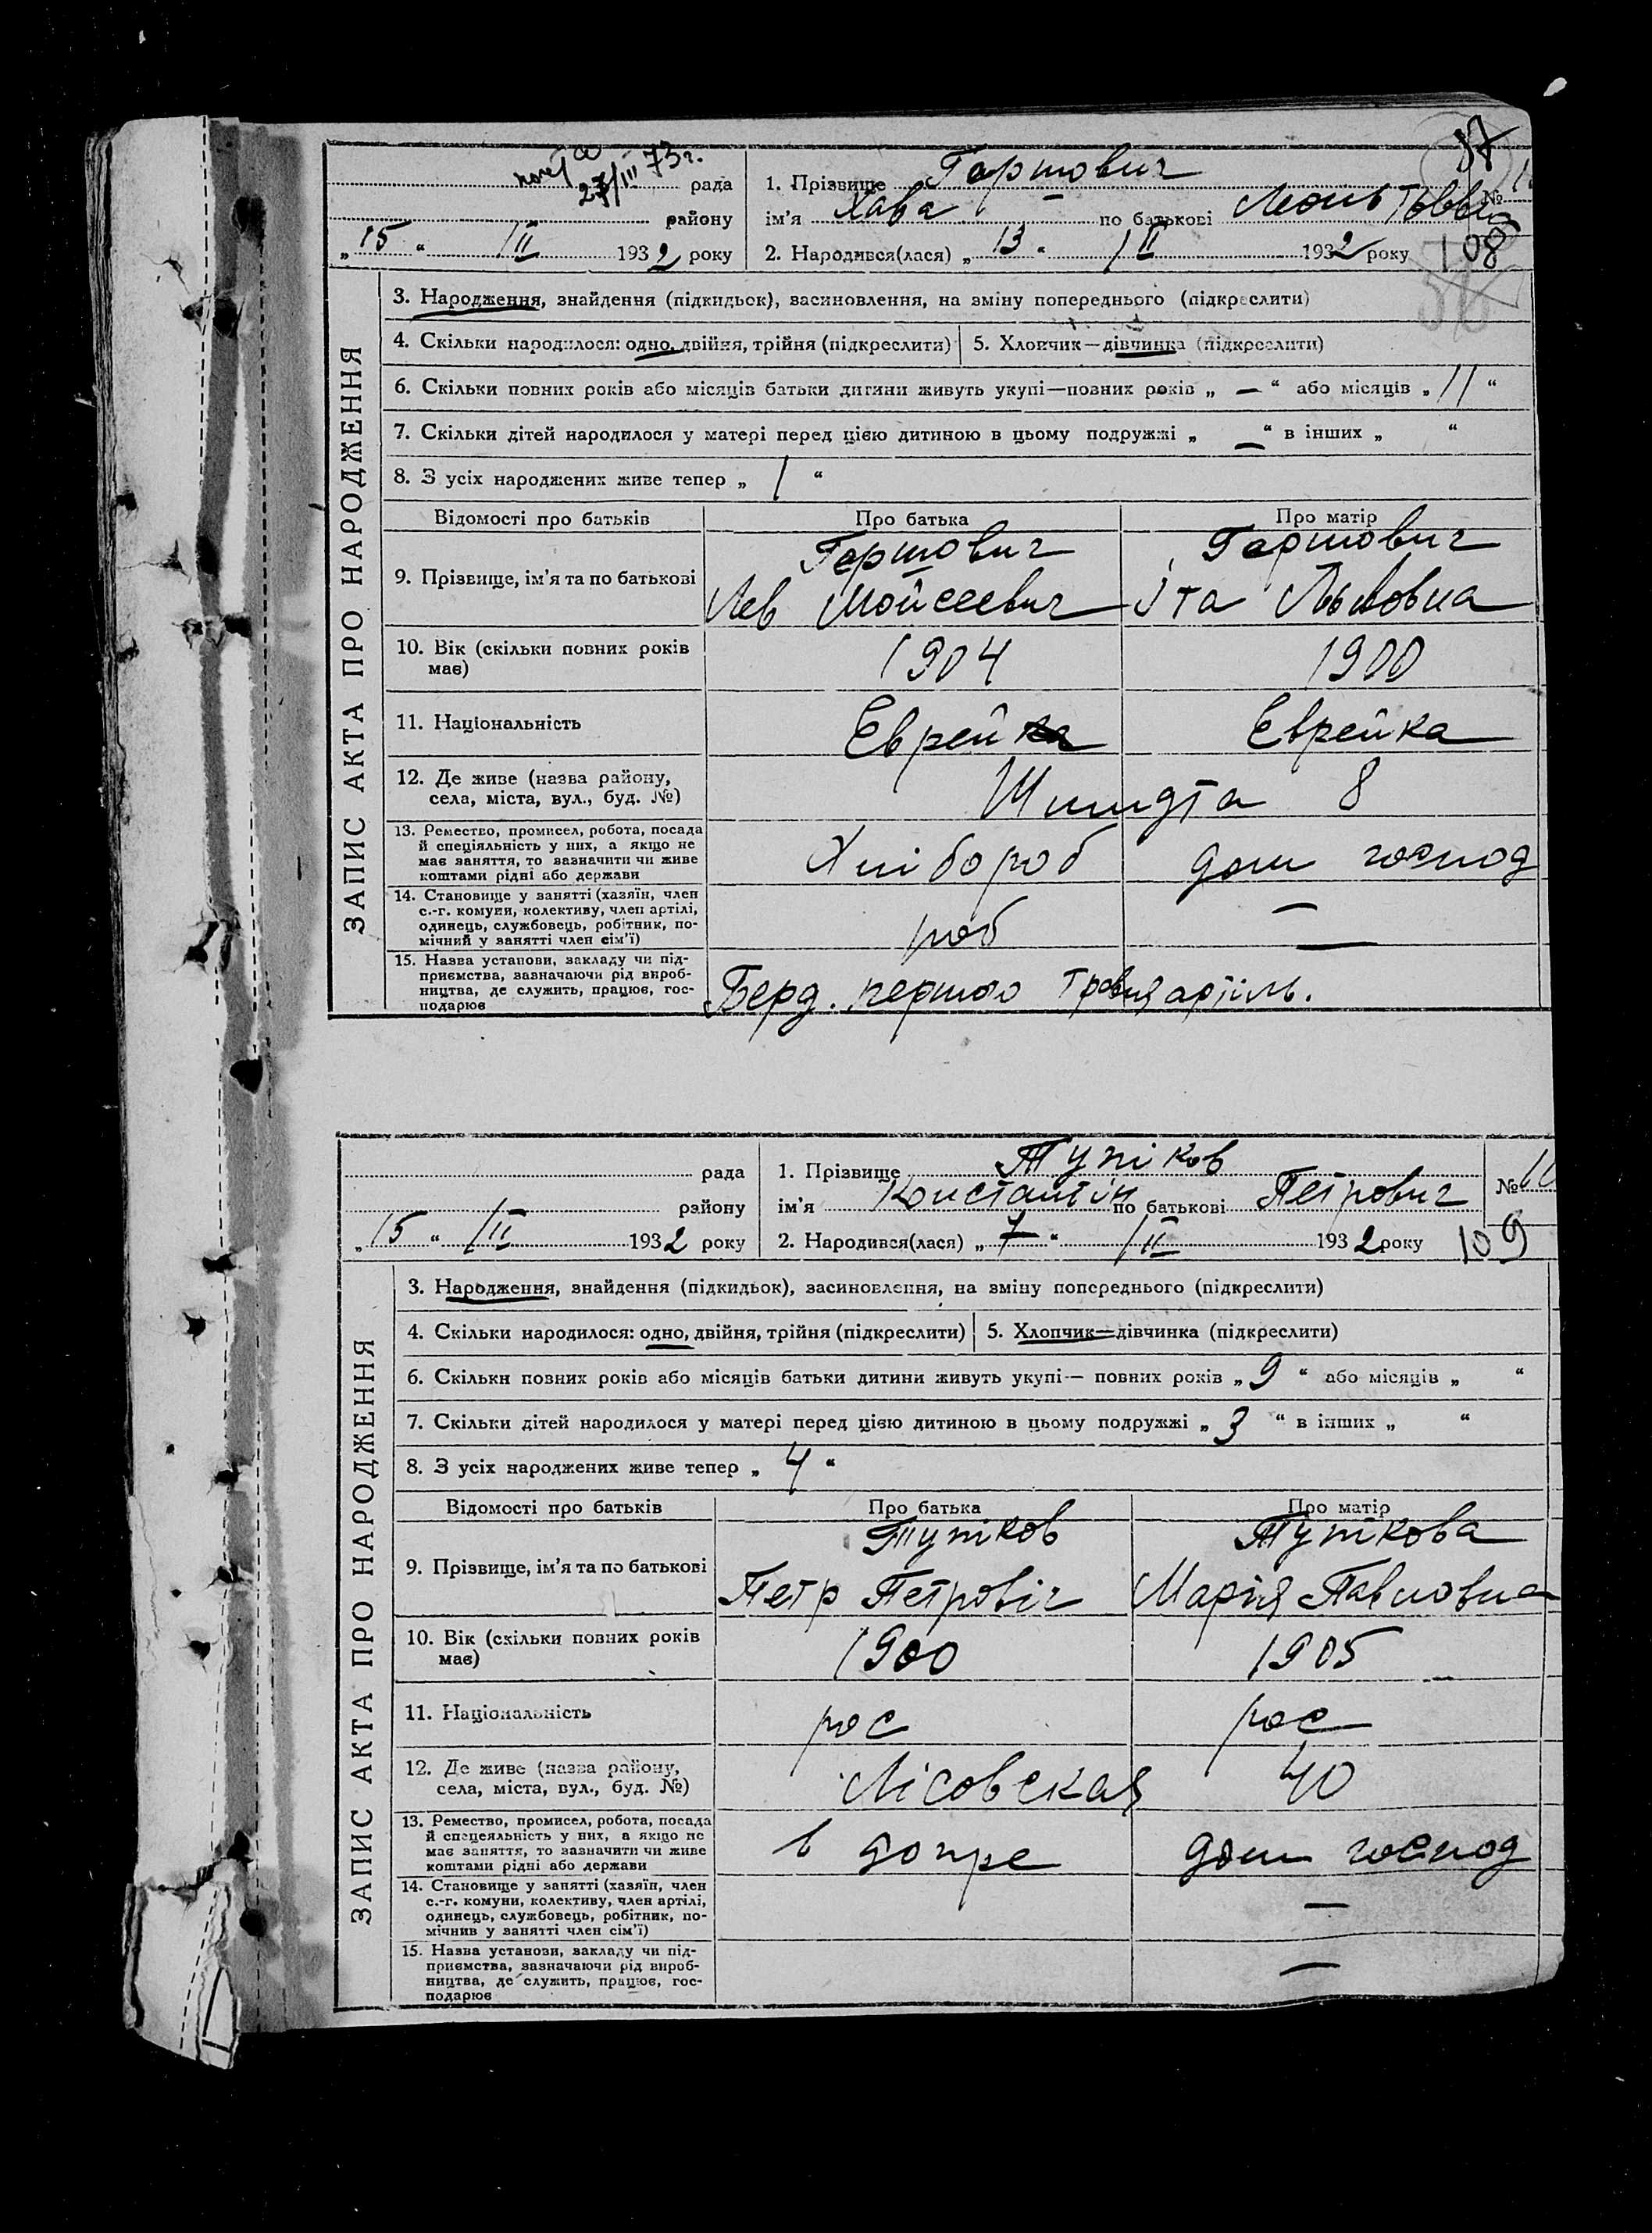 27/III 73г.
37
рада
1. Прізвище Гершович
№
району
ім'я Хава по батькові
„15“ /II 1932 року
2. Народився(лася) „13“ /II 1932 року
108
3. Народження, знайдення (підкидьок), засиновлення, на зміну попереднього (підкреслити)
4. Скільки народилося: одно, двійня, трійня (підкреслити) 5. Хлопчик—дівчинка (підкреслити)
6. Скільки повних років або місяців батьки дитини живуть укупі—повних років „ — “ або місяців „ 11 “
7. Скільки дітей народилося у матері перед цією дитиною в цьому подружжі „ — “ в інших „ “
8. З усіх народжених живе тепер „ 1 “
ЗАПИС АКТА ПРО НАРОДЖЕННЯ
Відомості про батьків Про батька Про матір
9. Прізвище, ім'я та по батькові
Гершович
Лев Мойсеевич
Гершович
Іта Львовна
10. Вік (скільки повних років має)
1904 1900
11. Національність
Еврейка Еврейка
12. Де живе (назва району,
села, міста, вул., буд. №)
Шмидта 8
13. Ремество, промисел, робота, посада
й спеціяльність у них, а якщо не
має заняття, то зазначити чи живе
коштами рідні або держави
Хлібороб дом господ
14. Становище у занятті (хазяїн, член
с.-г. комуни, колективу, член артілі,
одинець, службовець, робітник, по-
мічний у занятті член сім'ї)
роб —
15. Назва установи, закладу чи під-
приємства, зазначаючи рід вироб-
ництва, де служить, працює, гос-
подарює
Берд. першого травня артіль.
рада
1. Прізвище Тупіков
№
району
ім'я Константін по батькові Петрович
„15“ /II 1932 року
2. Народився(лася) „7“ /II 1932 року
109
3. Народження, знайдення (підкидьок), засиновлення, на зміну попереднього (підкреслити)
4. Скільки народилося: одно, двійня, трійня (підкреслити) 5. Хлопчик—дівчинка (підкреслити)
6. Скільки повних років або місяців батьки дитини живуть укупі— повних років „ 9 “ або місяців „ “
7. Скільки дітей народилося у матері перед цією дитиною в цьому подружжі „ 3 “ в інших „ “
8. З усіх народжених живе тепер „ 4 “
ЗАПИС АКТА ПРО НАРОДЖЕННЯ
Відомості про батьків Про батька Про матір
9. Прізвище, ім'я та по батькові
Тупіков
Петр Петровіч
Тупікова
Марія Павловна
10. Вік (скільки повних років має)
1900 1905
11. Національність
рос рос
12. Де живе (назва району,
села, міста, вул., буд. №)
Лісовская 40
13. Ремество, промисел, робота, посада
й спецеяльність у них, а якщо не
має заняття, то зазначити чи живе
коштами рідні або держави
в допре дом господ
14. Становище у занятті (хазяїн, член
с.-г. комуни, колективу, член артілі,
одинець, службовець, робітник, по-
мічнив у занятті член сім'ї)
—
15. Назва установи, закладу чи під-
приємства, зазначаючи рід вироб-
ництва, де служить, працює, гос-
подарює
—